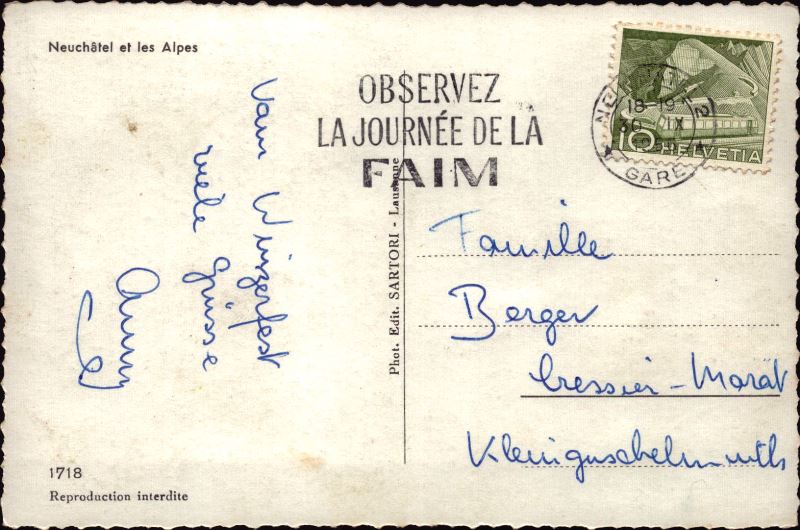 Neuchâtel et les Alpes
OBSERVEZ
LA JOURNÉE DE LA
FAIM
18-19
30 IX
GARE
10 HELVETIA
Vom Winzerfest
viele Grüsse
Phot. Edit. SARTORI - Lausanne
Famille
Berger
Cressier-Morat
Kleinguschelmuth
1718
Reproduction interdite